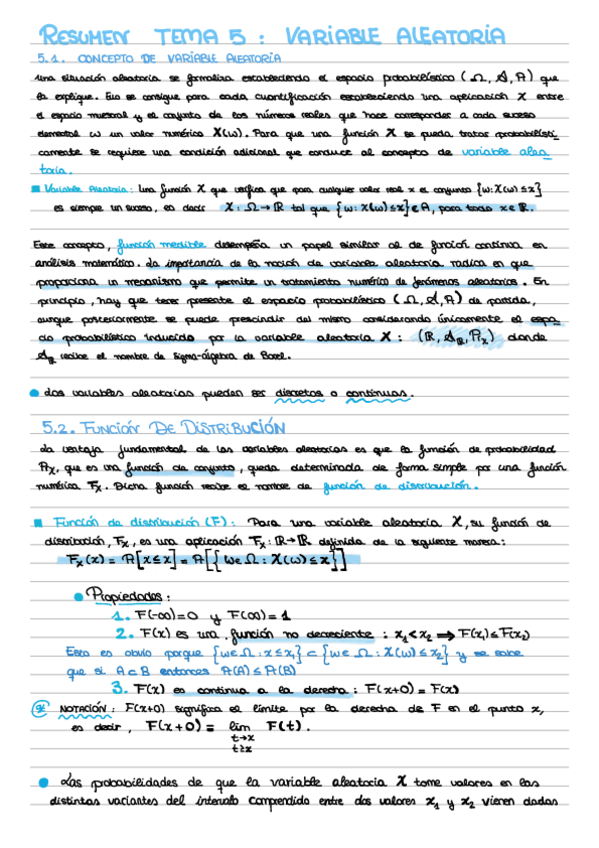 RESUMEN TEMA 5 : VARIABLE ALEATORIA
5.1. CONCEPTO DE VARIABLE ALEATORIA
Una situación aleatoria se formaliza estableciendo el espacio probabilístico (Ω, 𝒜, P) que
la explique. Eso se consigue para cada cuantificación estableciendo una aplicación X entre
el espacio muestral y el conjunto de los números reales que hace corresponder a cada suceso
elemental ω un valor numérico X(ω). Para que una función X se pueda tratar probabilísti_
camente se requiere una condición adicional que conduce al concepto de variable alea_
toria.
Variable Aleatoria: Una función X que verifica que para cualquier valor real x el conjunto {ω:X(ω)≤x}
es siempre un suceso, es decir X: Ω→ℝ tal que {ω: X(ω)≤x}∈A, para todo x∈ℝ.
Este concepto, función medible desempeña un papel similar al de función continua en
análisis matemático. La importancia de la noción de variable aleatoria radica en que
proporciona un mecanismo que permite un tratamiento numérico de fenómenos aleatorios. En
principio, hay que tener presente el espacio probabilístico (Ω, 𝒜, P) de partida,
aunque posteriormente se puede prescindir del mismo considerando únicamente el espa_
cio probabilístico inducido por la variable aleatoria X: (ℝ, 𝒜ℝ, Pₓ) donde
𝒜ℝ recibe el nombre de Sigma-álgebra de Borel.
• Las variables aleatorias pueden ser discretas o continuas.
5.2. FUNCIÓN DE DISTRIBUCIÓN
La ventaja fundamental de las variables aleatorias es que la función de probabilidad
Pₓ, que es una función de conjunto, queda determinada de forma simple por una función
numérica Fₓ. Dicha función recibe el nombre de función de distribución.
Función de distribución (F): Para una variable aleatoria X, su función de
distribución, Fₓ, es una aplicación Fₓ: ℝ→ℝ definida de la siguiente manera:
Fₓ(x) = P[X≤x] = P[{ω∈Ω: X(ω)≤x}]
• Propiedades:
1. F(-∞)=0 y F(∞)=1
2. F(x) es una función no decreciente : x₁<x₂ ⟹ F(x₁)≤F(x₂)
Esto es obvio porque {ω∈Ω:x≤x₁}⊂{ω∈Ω:X(ω)≤x₂} y se sabe
que si A⊂B entonces P(A)≤P(B)
3. F(x) es continua a la derecha: F(x+0) = F(x)
NOTACIÓN: F(x+0) significa el límite por la derecha de F en el punto x,
es decir, F(x+0) = lim F(t).
t→x
t≥x
• Las probabilidades de que la variable aleatoria X tome valores en las
distintas variantes del intervalo comprendido entre dos valores x₁ y x₂ vienen dadas